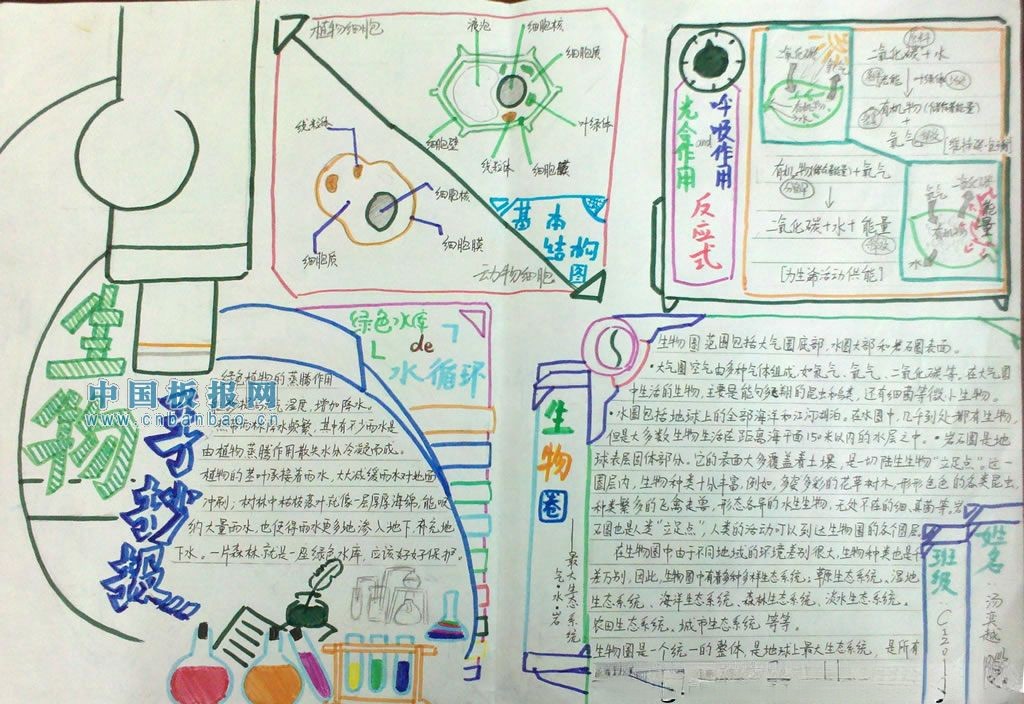 植物细胞
液泡
细胞核
细胞质
叶绿体
细胞膜
线粒体
细胞壁
线粒体
细胞核
细胞膜
细胞质
动物细胞
基本
结构
图
光合作用
and
呼吸作用
反应式
二氧化碳
氧气
有机物
水
原料
二氧化碳+水
光能
叶绿体
有机物(储存能量)
+
氧气
有机物(储存能量)+氧气
二氧化碳+水+能量
[为生命活动供能]
氧气
二氧化碳
有机物
水
能量
生物
手抄报
中国板报网
www.cnbanbao.cn
绿色水库
de
水循环
绿色植物的蒸腾作用
湿度,增加降水。
由植物蒸腾作用散失水分冷凝而成。
植物的茎叶承接着雨水,大大减缓雨水对地面
冲刷;树林中枯枝落叶就像一层厚厚海绵,能吸
纳大量雨水,也使得雨水更多地渗入地下,补充地
下水。一片森林就是一座绿色水库,应该好好保护。
生物圈
——最大生态系统
气·水·岩
生物圈范围包括大气圈底部,水圈大部和岩石圈表面。
·大气圈空气由多种气体组成,如氮气、氧气、二氧化碳等,在大气圈
中生活的生物,主要是能够飞翔的昆虫和鸟类,还有细菌等微小生物。
·水圈包括地球上的全部海洋和江河湖泊。在水圈中,几乎到处都有生物,
但是大多数生物生活在距离海平面150米以内的水层之中。·岩石圈是地
球表层固体部分。它的表面大多覆盖着土壤,是一切陆生生物“立足点”。这一
圈层内,生物种类十分丰富,例如,多姿多彩的花草树木,形形色色的各类昆虫,
种类繁多的飞禽走兽,形态各异的水生生物,无处不在的细、真菌等,岩
石圈也是人类“立足点”,人类的活动可以到达生物圈的各个圈层。
在生物圈中由于不同地域的环境差别很大,生物种类也是千
差万别,因此,生物圈中有着多种多样生态系统:草原生态系统、湿地
生态系统、海洋生态系统、森林生态系统、淡水生态系统。
农田生态系统、城市生态系统等等。
生物圈是一个统一的整体,是地球上最大生态系统,是所有
班级
姓名